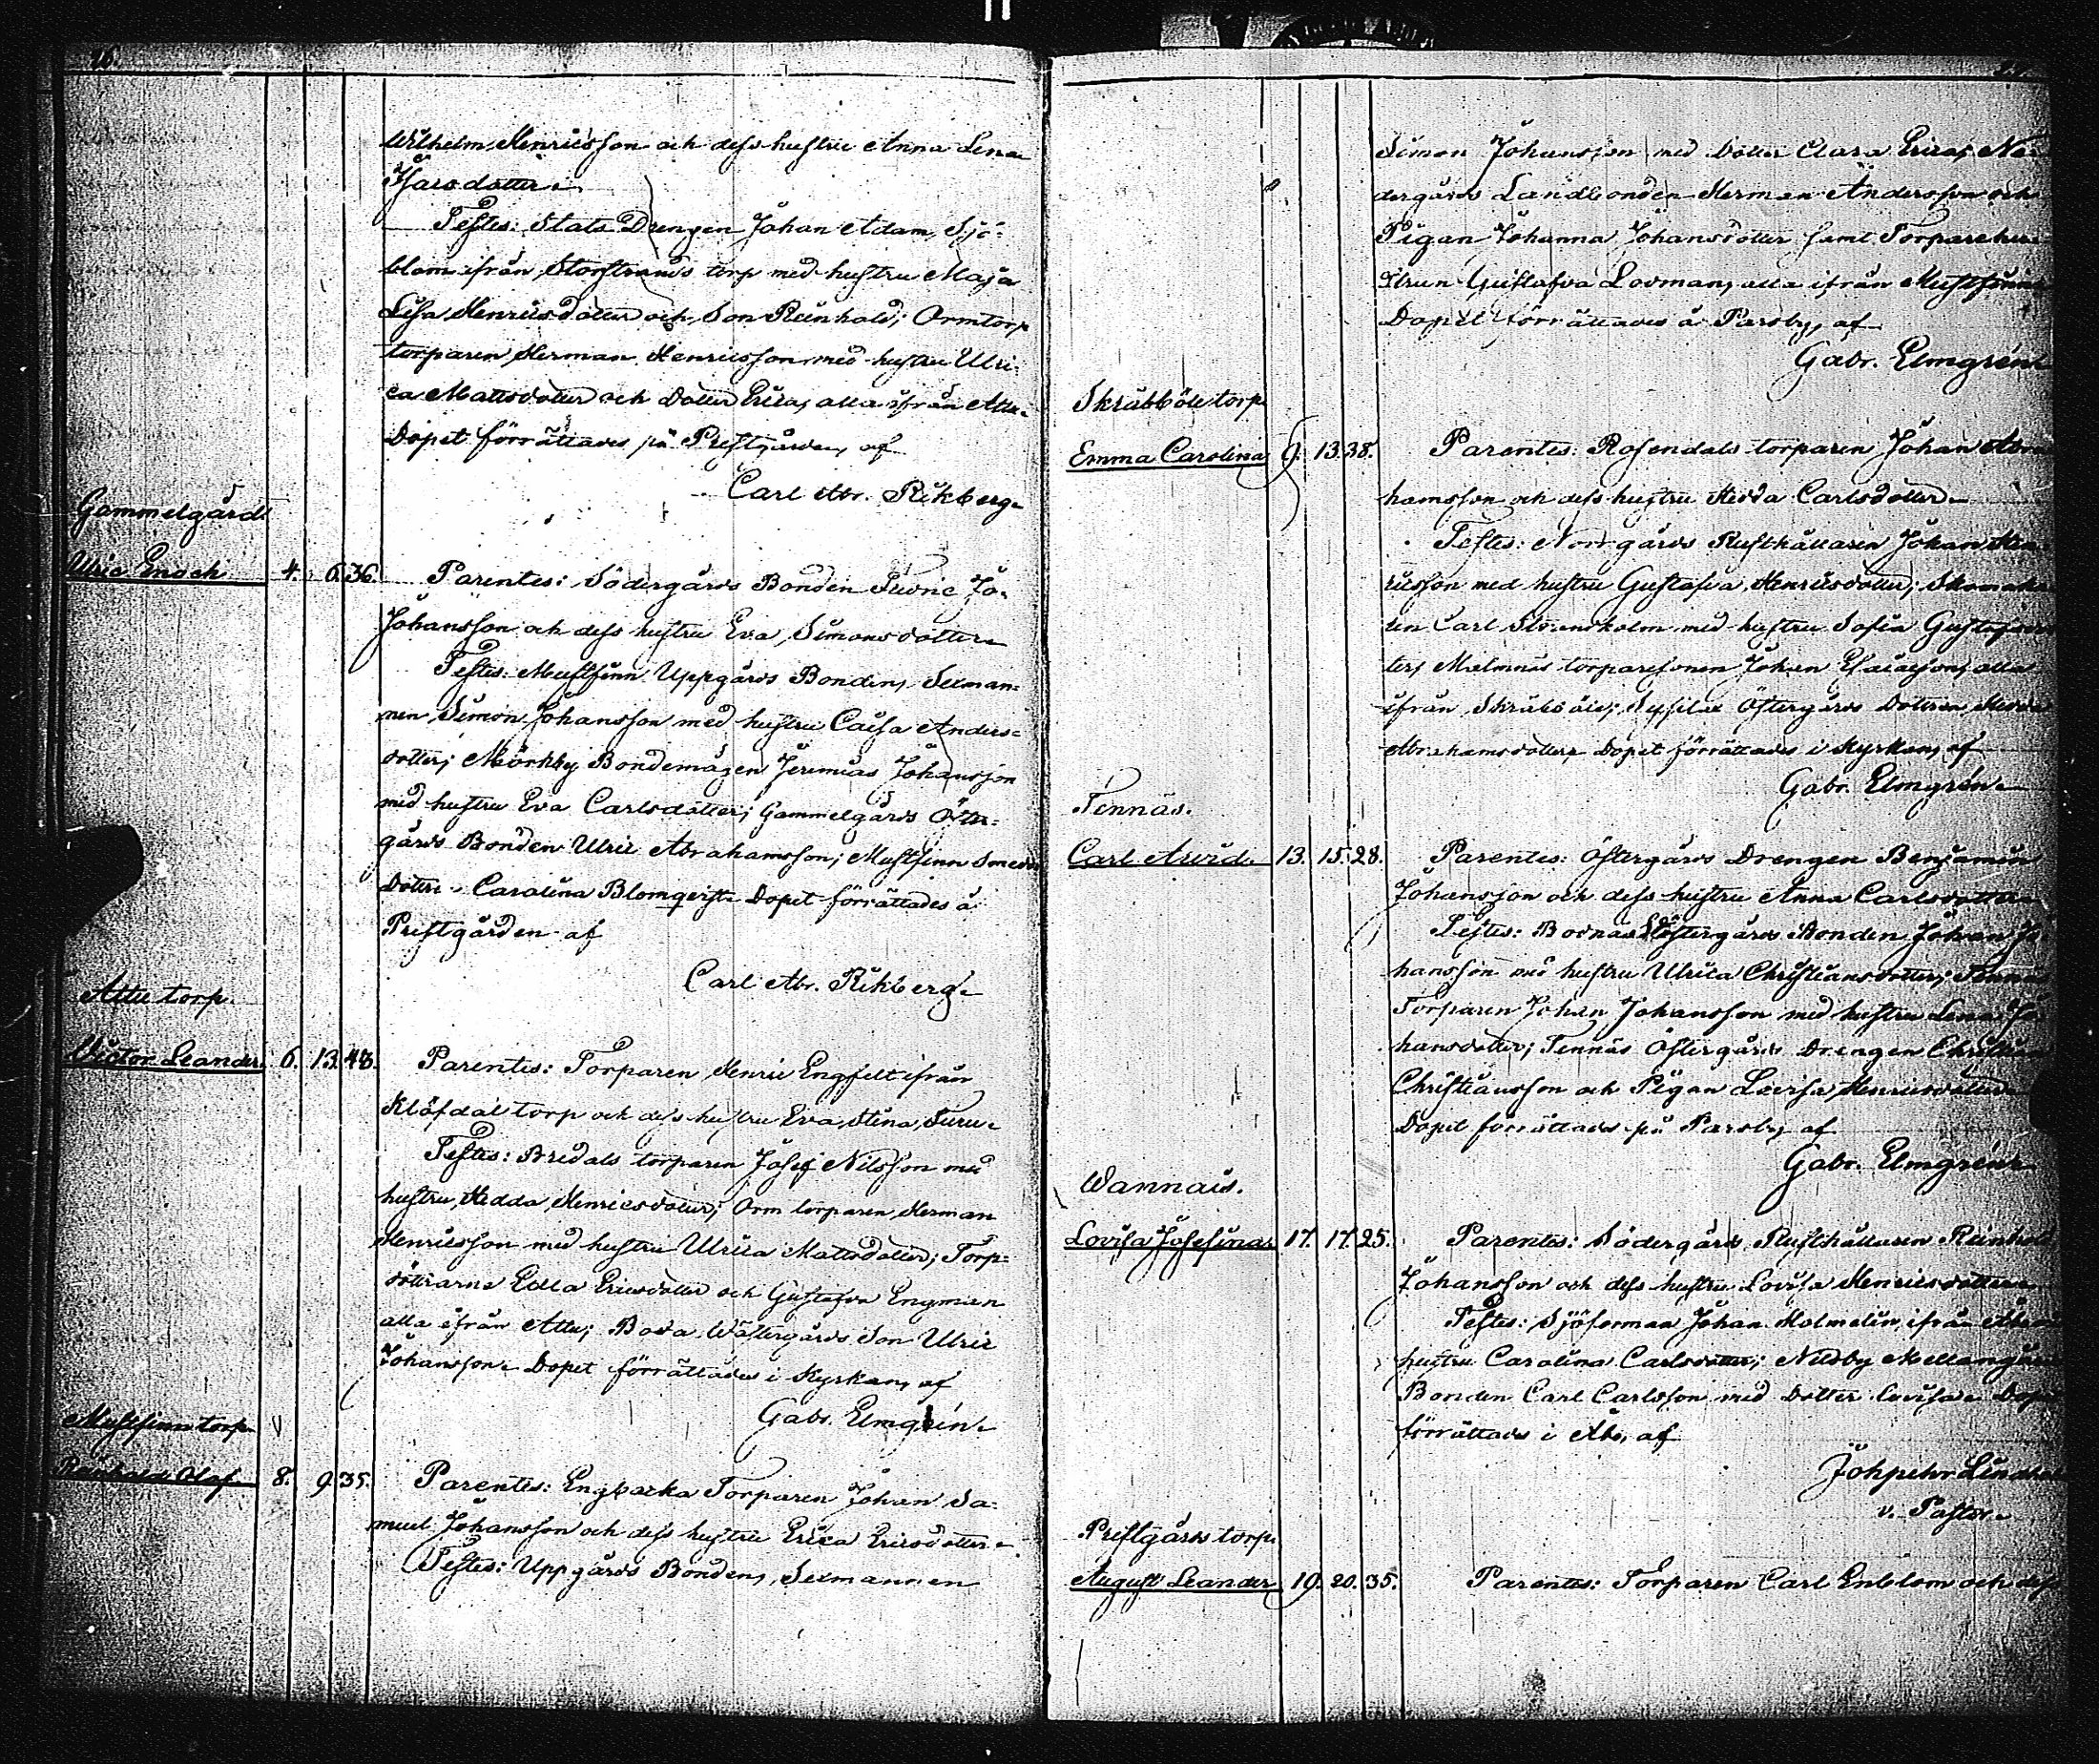 26.
Wilhelm Henricsson och dess hustru Anna Lena
Isacsdotter.
Testes: Stats Drengen Johan Adam Sjö-
blom ifrån Storstrands torp med hustru Maja
Lisa Henricsdotter och Son Reinhold; Ormtorp
torparen Herman Henricsson med hustru Ulri-
ca Mattsdotter och Dotter Erica, alla ifrån Attu.
Dopet förrättades på Prestgården, af
Carl Abr. Rikberg.
Gammelgård.
Ulric Enoch 4. 6. 36. Parentes: Södergårds Bonden Fredric Jo-
Johansson och dess hustru Eva Simonsdotter.
Testes: Mustfinn Uppgårds Bonden, Sexman-
nen Simon Johansson med hustru Caisa Anders-
dotter; Mörkby Bondemågen Jeremias Johansson
med hustru Eva Carlsdotter; Gammelgårds Öster-
gårds Bonden Ulric Abrahamsson; Mustfinn Smeds
Dotter Carolina Blomqvist. Dopet förrättades å
Prestgården af
Carl Abr. Rikberg.
Attu torp.
Victor Leander. 6. 13. 43. Parentes: Torparen Henric Engfelt ifrån
Klöfdal torp och dess hustru Eva Stina Furu.
Testes: Bredals torparen Josef Nilsson med
hustru Hedda Henricsdotter; Orm torparen Herman
Henricsson med hustru Ulrica Mattsdotter; Torp-
döttrarne Edla Ericsdotter och Gustafva Engman
alla ifrån Attu; Boda Wästergårds Son Ulric
Johansson. Dopet förrättades i Kyrkan, af
Gabr. Elmgrén.
Mustfinn torp.
Reinhold Olof 8. 9. 35. Parentes: Engbacka Torparen Johan Sa-
muel Johansson och dess hustru Erica Ericsdotter.
Testes: Uppgårds Bonden, Sexmannen
Simon Johansson med Dotter Clara Erica, Ne-
dergårds Landbonden Herman Andersson och
Pigan Johanna Johansdotter samt Torparehu-
strun Gustafva Lovman, alla ifrån Mustfinn
Dopet förrättades å Parsby, af
Gabr. Elmgrén
Skräbböle torp.
Emma Carolina 9. 13. 38. Parentes: Rosendals torparen Johan Abra
hamsson och dess hustru Hedda Carlsdotter.
Testes: Norrgårds Rusthållaren Johan Hen
ricsson med hustru Gustafva Henricsdotter; Skomaka
ren Carl Strandholm med hustru Sofia Gustafsdot
ter, Malmnäs torparesonen Johan Esaiasson, alla
ifrån Skräbböle; Östergårds Dottren Hedda
Abrahamsdotter. Dopet förrättades i Kyrkan, af
Gabr. Elmgrén.
Tennäs.
Carl Arvid. 13. 15. 28. Parentes: Östergårds Drengen Benjamin
Johansson och dess hustru Anna Carlsdotter.
Testes: Bodnäs Östergårds Bonden Johan Jo
hansson med hustru Ulrica Christiansdotter; Tennäs
Torparen Johan Johansson med hustru Lena Jo
hansdotter; Tennäs Östergårds Drengen Christian
Christiansson och Pigan Lovisa Henricsdotter.
Dopet förrättades på Parsby, af
Gabr. Elmgrén.
Wannais.
Lovisa Josefina. 17. 17. 25. Parentes: Södergårds Rusthållaren Reinhold
Johansson och dess hustru Lovisa Henricsdotter.
Testes: Sjöforman Johan Holmelin ifrån Åbo
hustru Carolina Carlsdotter; Nilsby Mellangårds
Bonden Carl Carlsson med Dotter Lovisa. Dopet
förrättades i Åbo, af
v. Pastor.
Prestgårds torp.
August Leander 19. 20. 35. Parentes: Torparen Carl Enblom och dess